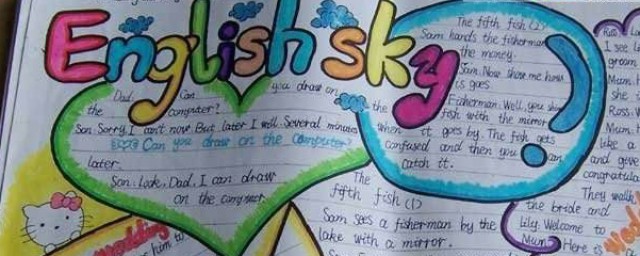 English sky
Dad, Can you draw on
the computer?
Son: Sorry, I can't now. But later I will. Several minutes
later.
Can you draw on the Computer?
Son: Look, Dad, I can draw
on the computer
The fifth fish (2)
Sam hands the fisherman
the money.
Sam: Now show me how
is goes.
Fisherman: Well, you shine
the fish with the mirror
when it goes by. The fish gets
confused and then you can
catch it.
The
fifth fish (1)
Sam sees a fisherman by the
lake with a mirror.
I see
groom
Mum
she
Ross
Mum
like a
and give
congratula
They walk
the bride and
Lily: Welcome to
Mum: Here is
Wedding
him to